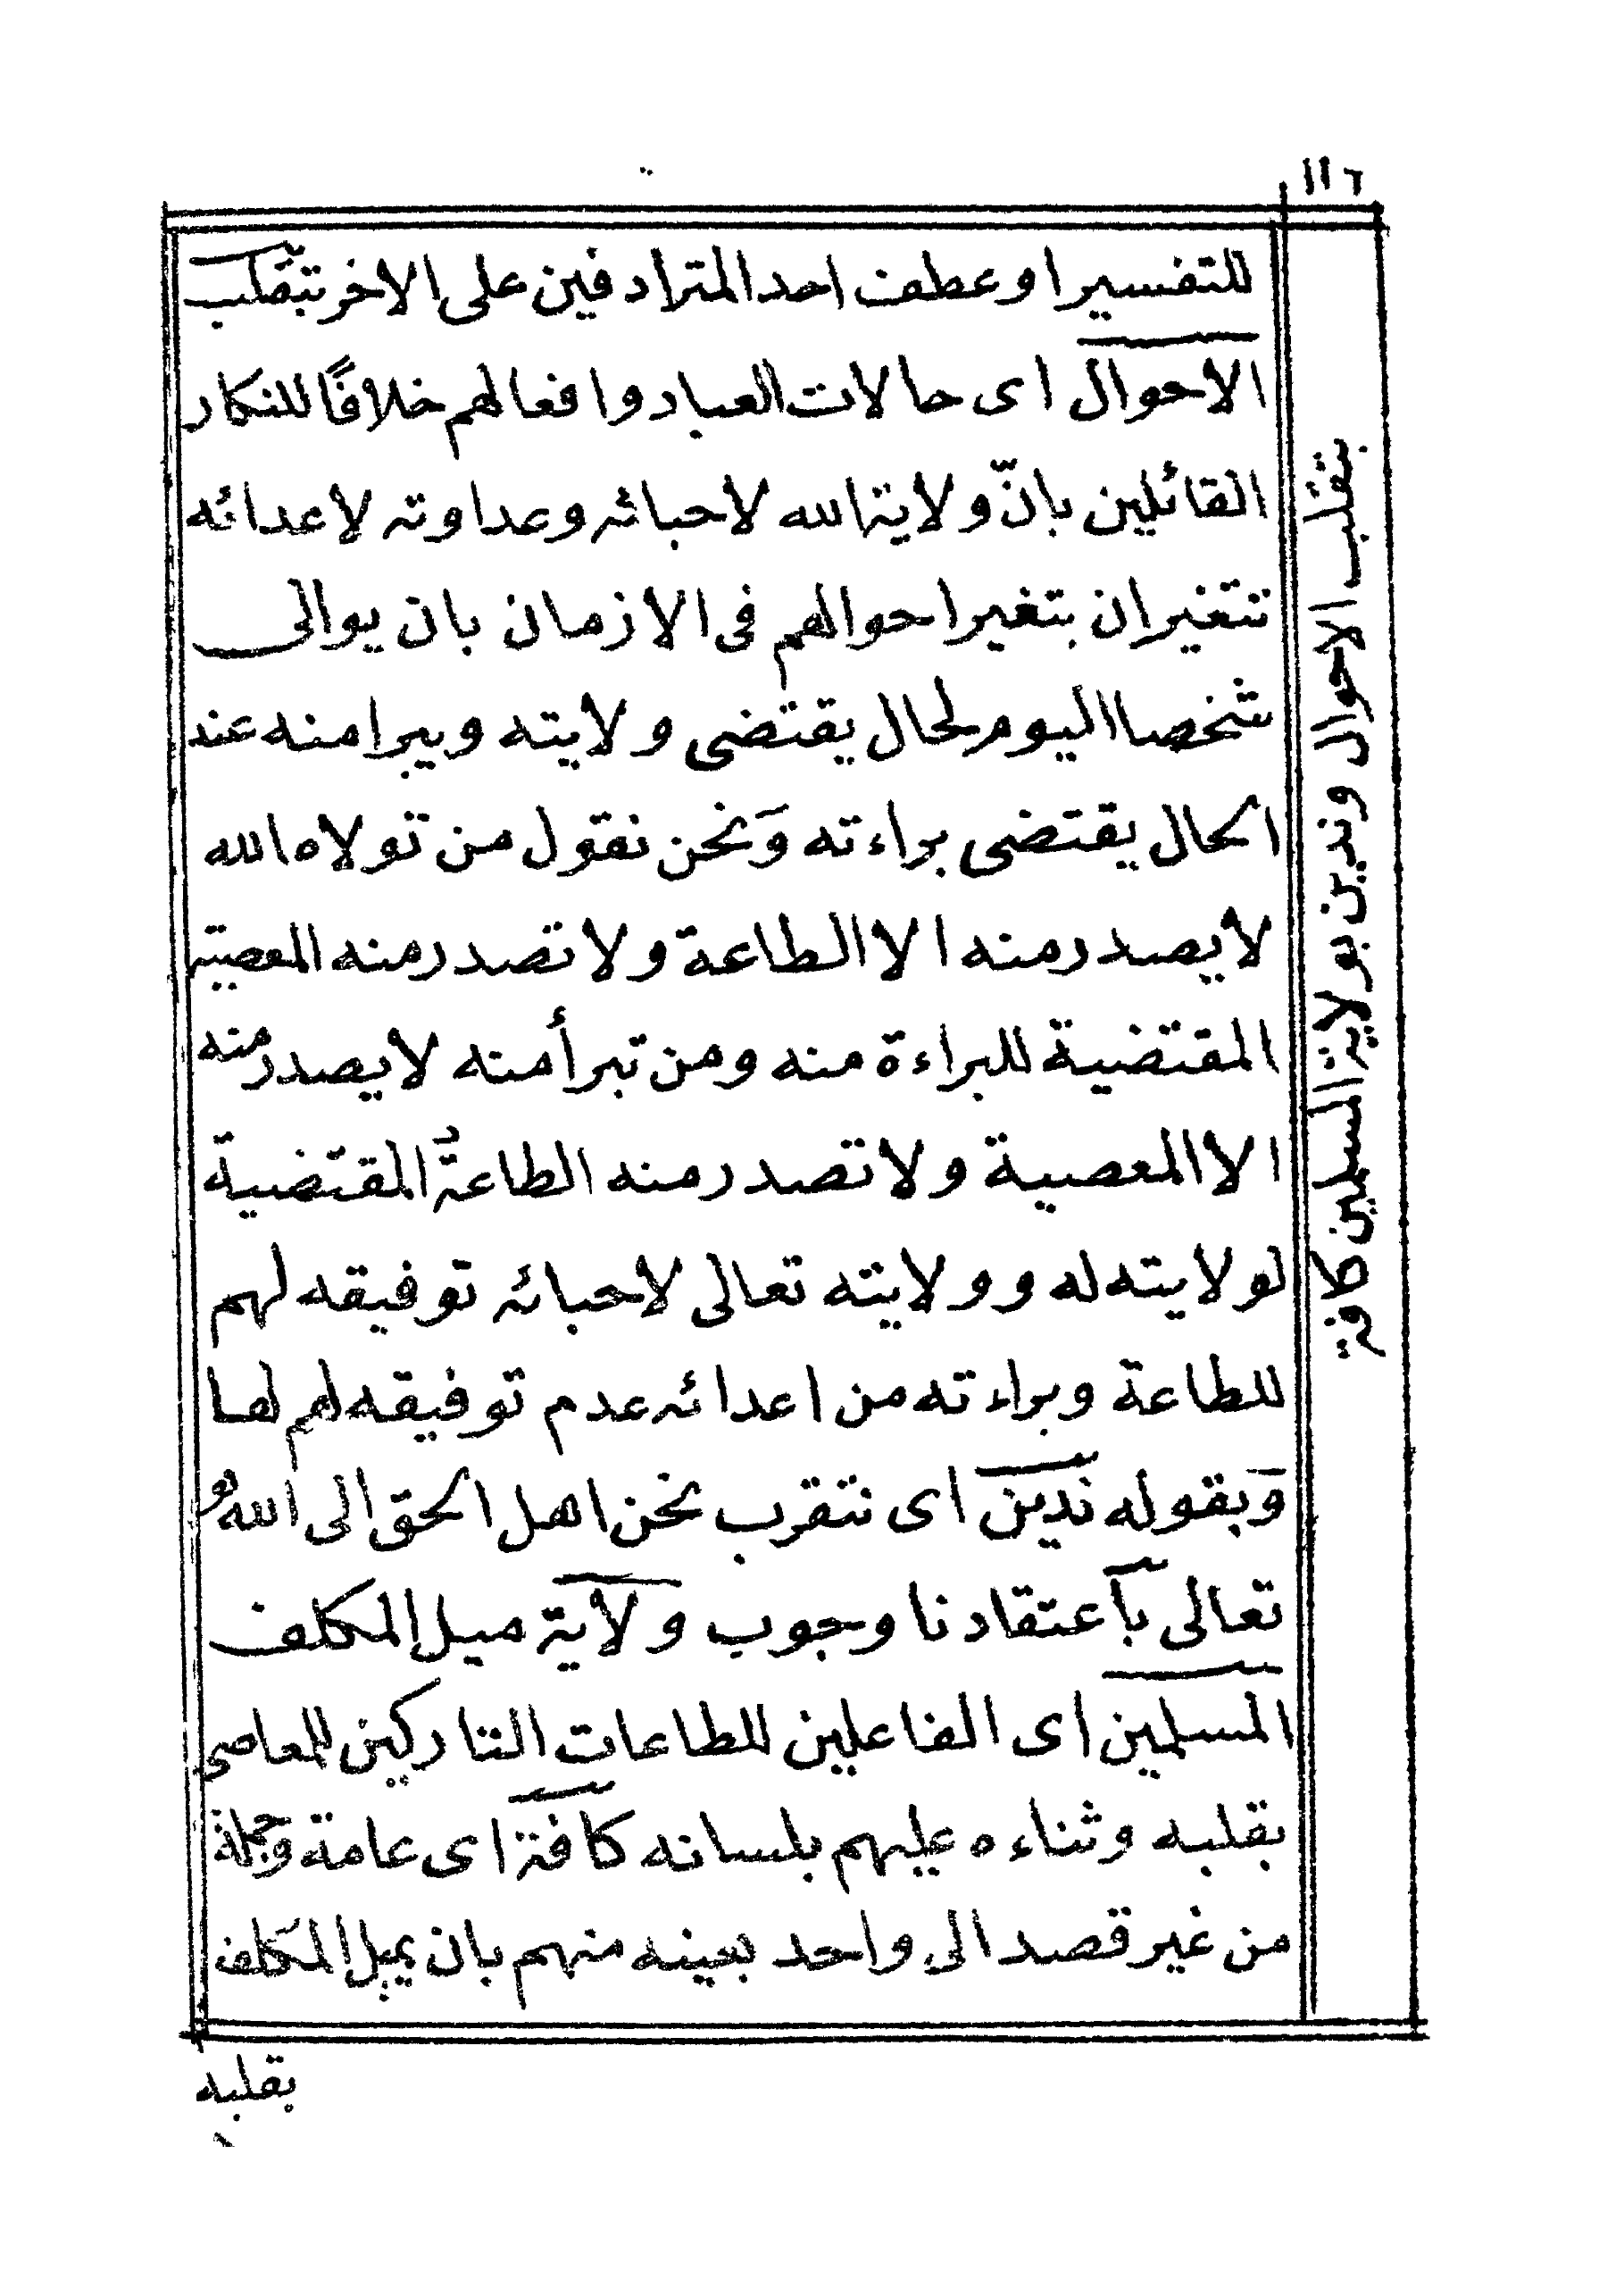 ١١٦
للتفسير او عطف احد المترادفين على الاخر بتقلب
الاحوال اى حالات العباد وافعالهم خلافًا للنكار
القائلين بانّ ولاية الله لأحبائه وعداوته لاعدائه
تتغيران بتغير احوالهم فى الازمان بان يوالى
شخصا اليوم لحال يقتضى ولايته ويبرا منه عند
الحال يقتضى براءته وَنحن نقول من تولاه الله
لأيصدر منه الا الطاعة ولا تصدر منه المعصية
المقتضية للبراءة منه ومن تبرأ منه لا يصدر منه
الا المعصية ولا تصدر منه الطاعةُ المقتضية
لولايته له وولايته تعالى لأحبائه توفيقه لهم
للطاعة وبراءته من اعدائه عدم توفيقه لهم لها
وَبقوله ندين اى نتقرب نحن اهل الحق الى الله هو
تعالى باعتقادنا وجوب ولأية ميل المكلف
المسلمين اى الفاعلين للطاعات التاركين للمعاصى
بقلبه وثناءه عليهم بلسانه كافة اى عامة وجملة
من غير قصد الى واحد بعينه منهم بان يميل المكلف
بقلبه
بتقلب الاحوال وندين بولاية المسلمين كافة